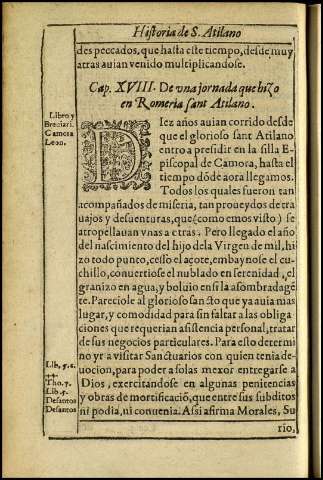 Historia de S. Atilano
des peccados, que hasta este tiempo, desde muy
atras auian venido multiplicandose.
Cap. XVIII. De vna jornada que hizo
en Romeria sant Atilano.
Libro y
Breuiari.
Camora
Leon.
DIez años auian corrido desde
que el glorioso sant Atilano
entro a presidir en la silla E-
piscopal de Camora, hasta el
tiempo dõde aora llegamos.
Todos los quales fueron tan
acompañados de miseria, tan proueydos de tra
uajos y desuenturas, que (como emos visto) se
atropellauan vnas a otras. Pero llegado el año
del nascimiento del hijo de la Virgen de mil, hi
zo todo punto, cesso el açote, embaynose el cu-
chillo, conuertiose el nublado en serenidad, el
granizo en agua, y boluio en si la asombrada gẽ
te. Pareciole al glorioso sancto que ya auia mas
lugar, y comodidad para sin faltar a las obliga
ciones que requerian asistencia personal, tratar
de sus negocios particulares. Para esto determi
no yr a visitar Sanctuarios con quien tenia de-
uocion, para poder a solas mexor entregarse a
Dios, exercitandose en algunas penitencias
y obras de mortificaciõ, que entre sus subditos
ni podia, ni conuenia. Assi afirma Morales, Su
Lib. 5. c.
Tho. 7.
Lib. 5.
De santos
De santos
rio,